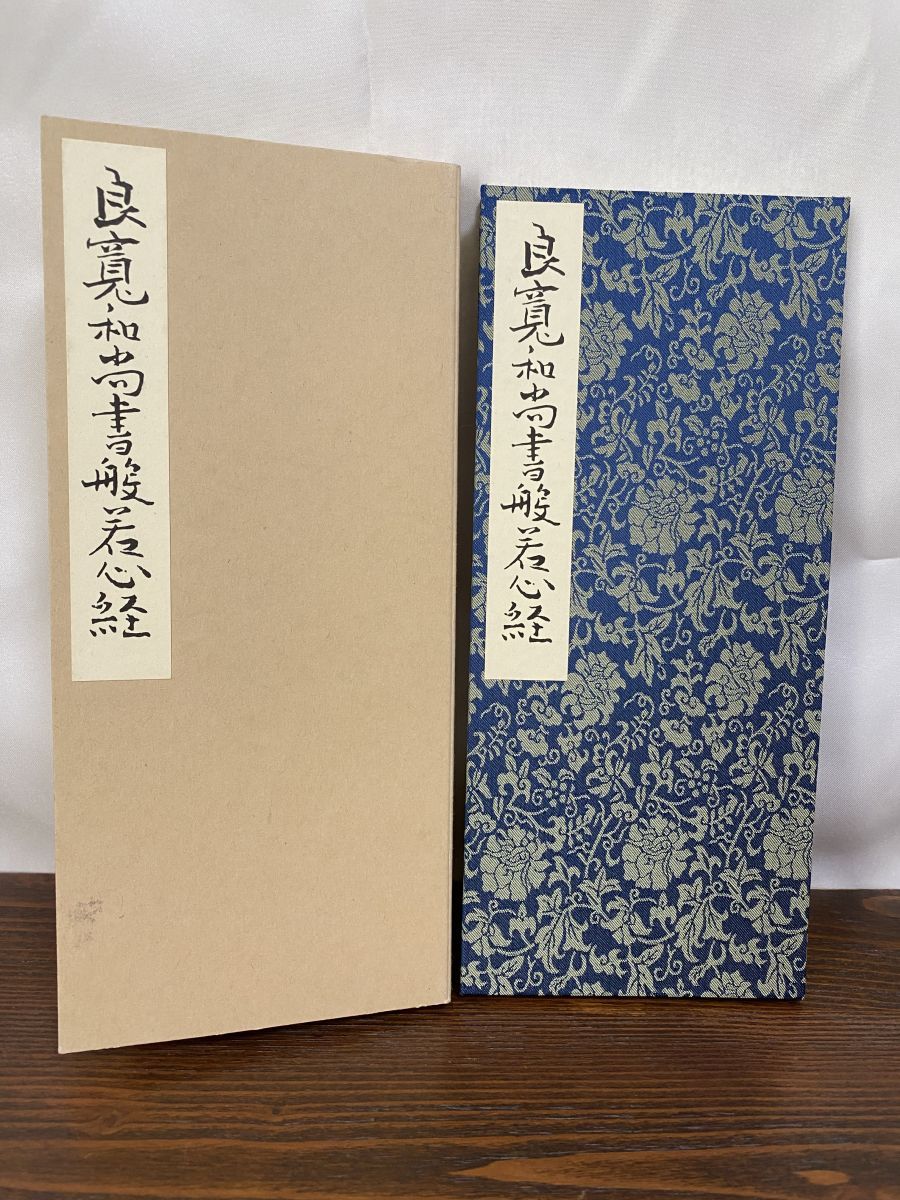 良寛和尚書般若心経
良寛和尚書般若心経